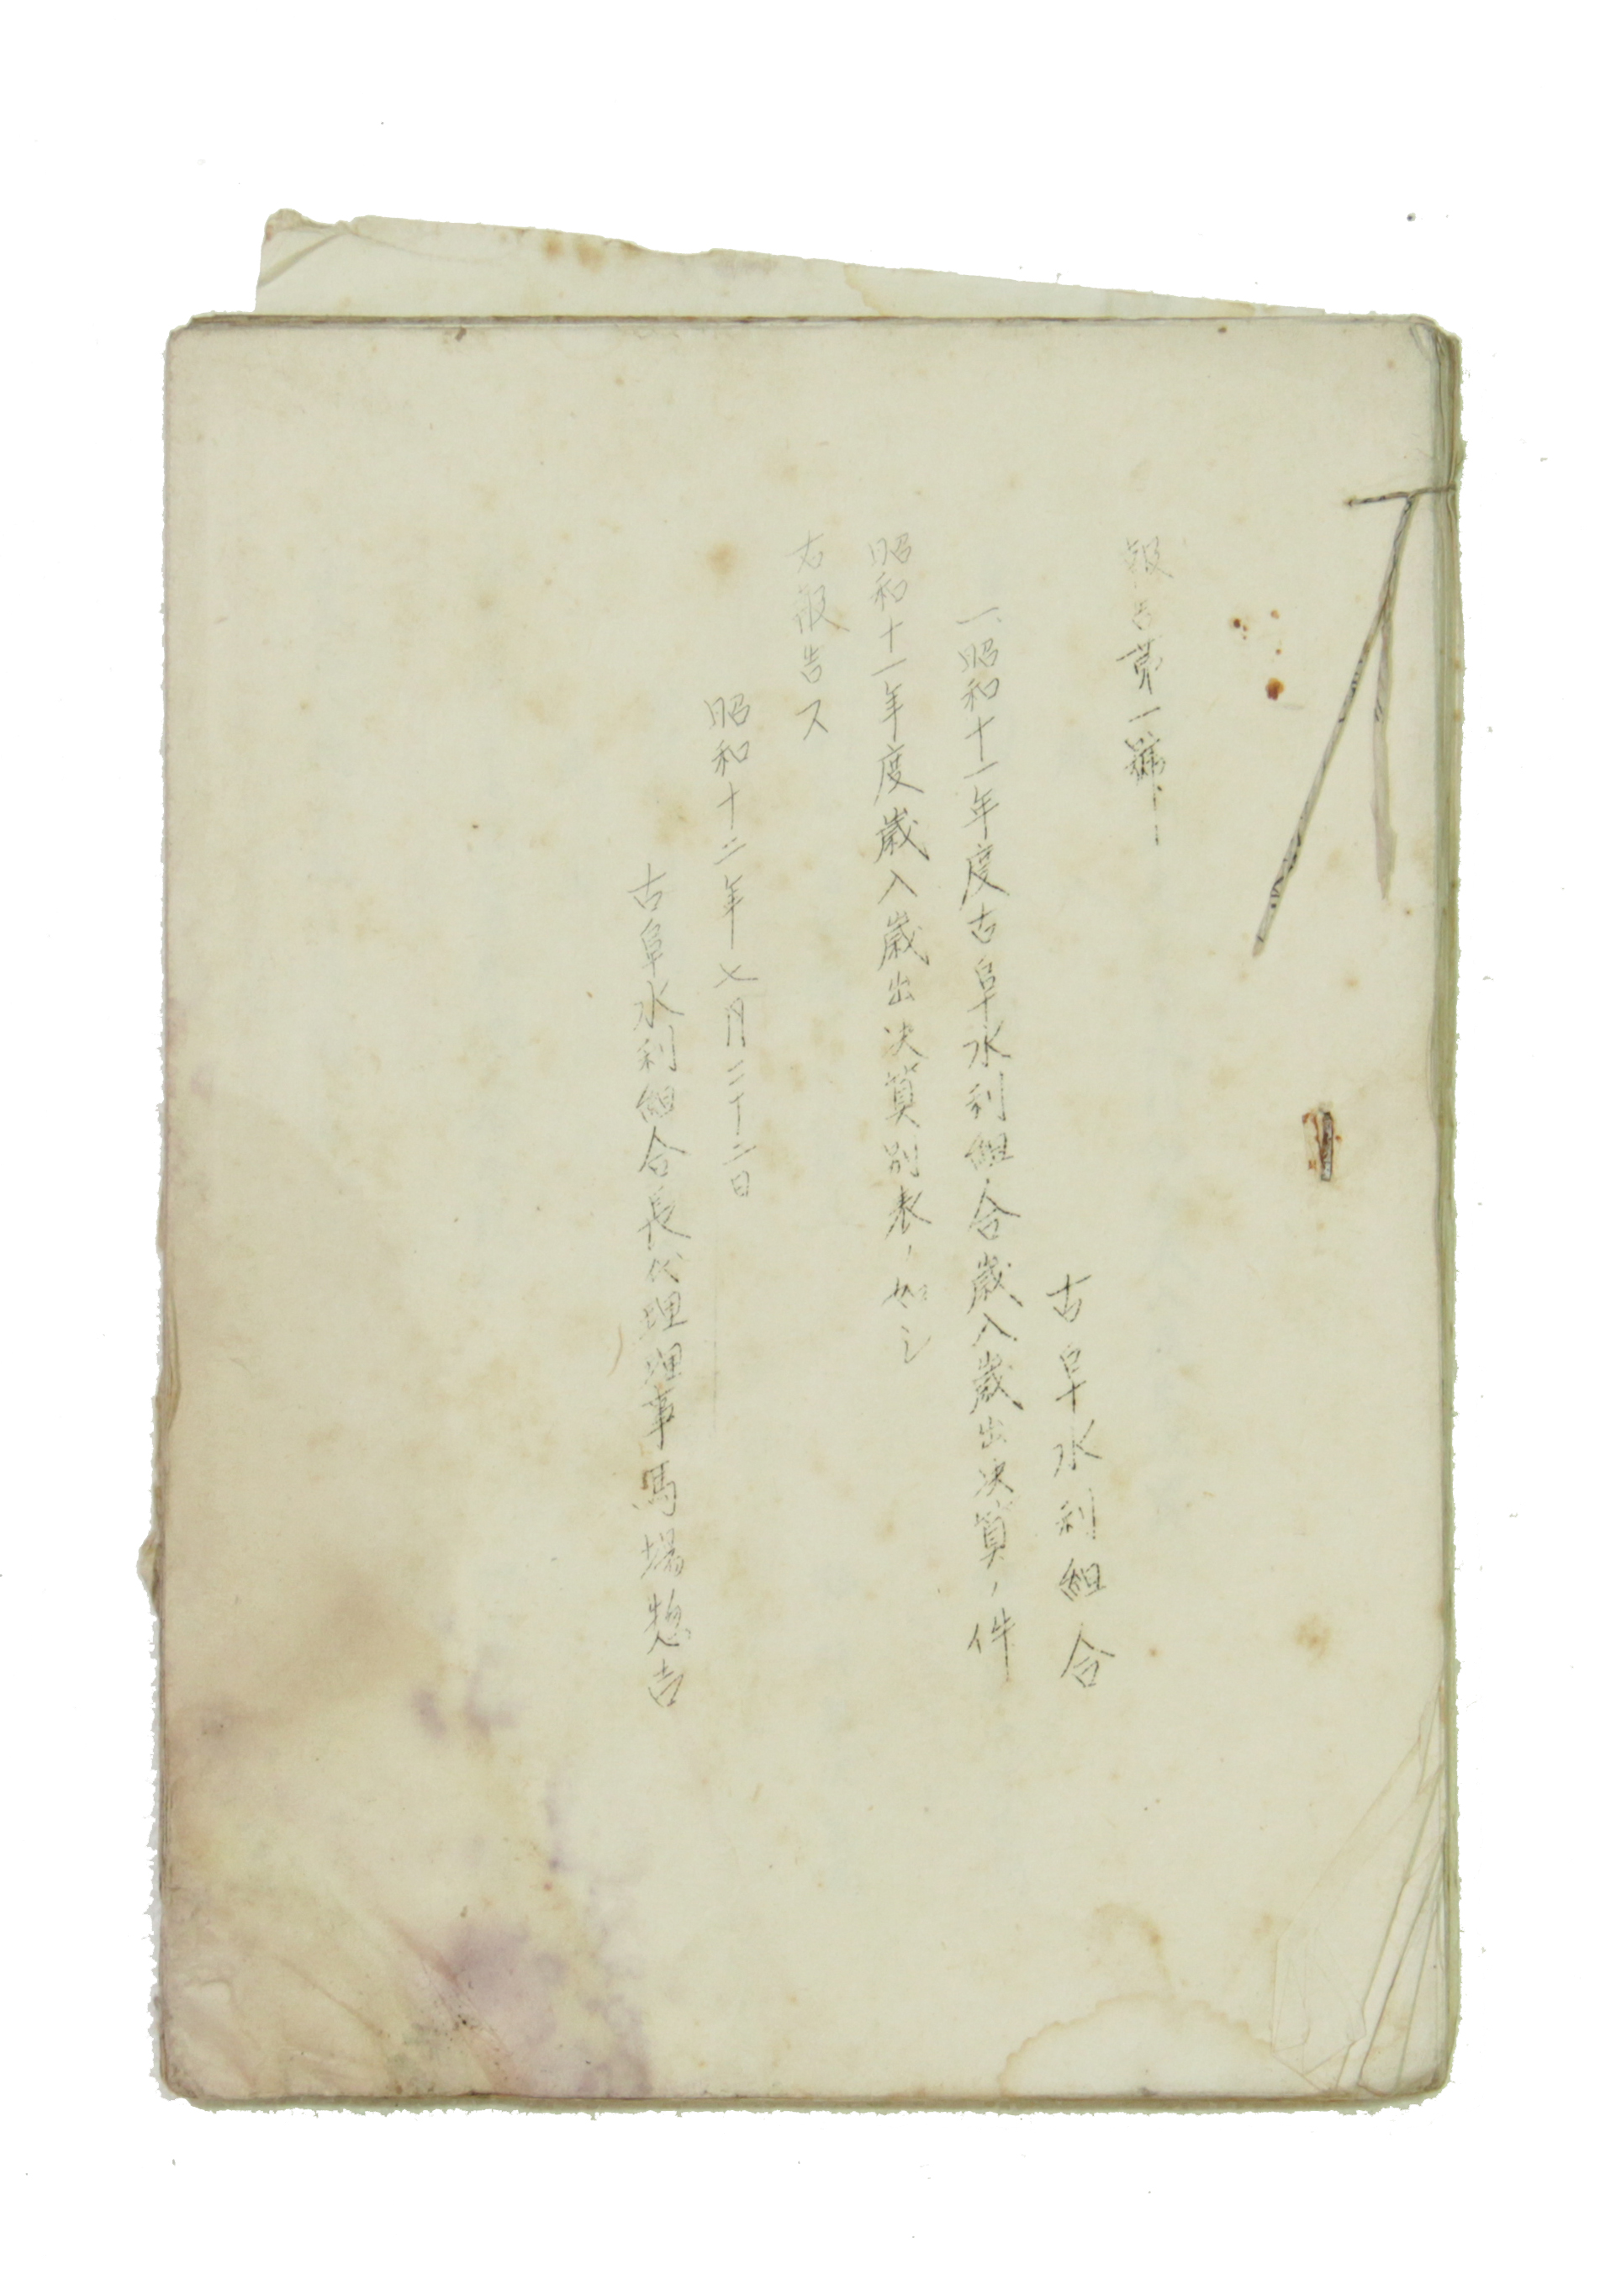 報告第一號
古阜水利組合
一、昭和十一年度古阜水利組合歳入歳出決算ノ件
昭和十一年度歳入歳出決算別表ノ如シ
右報告ス
昭和十二年七月二十二日
古阜水利組合長代理理事馬場惣吉